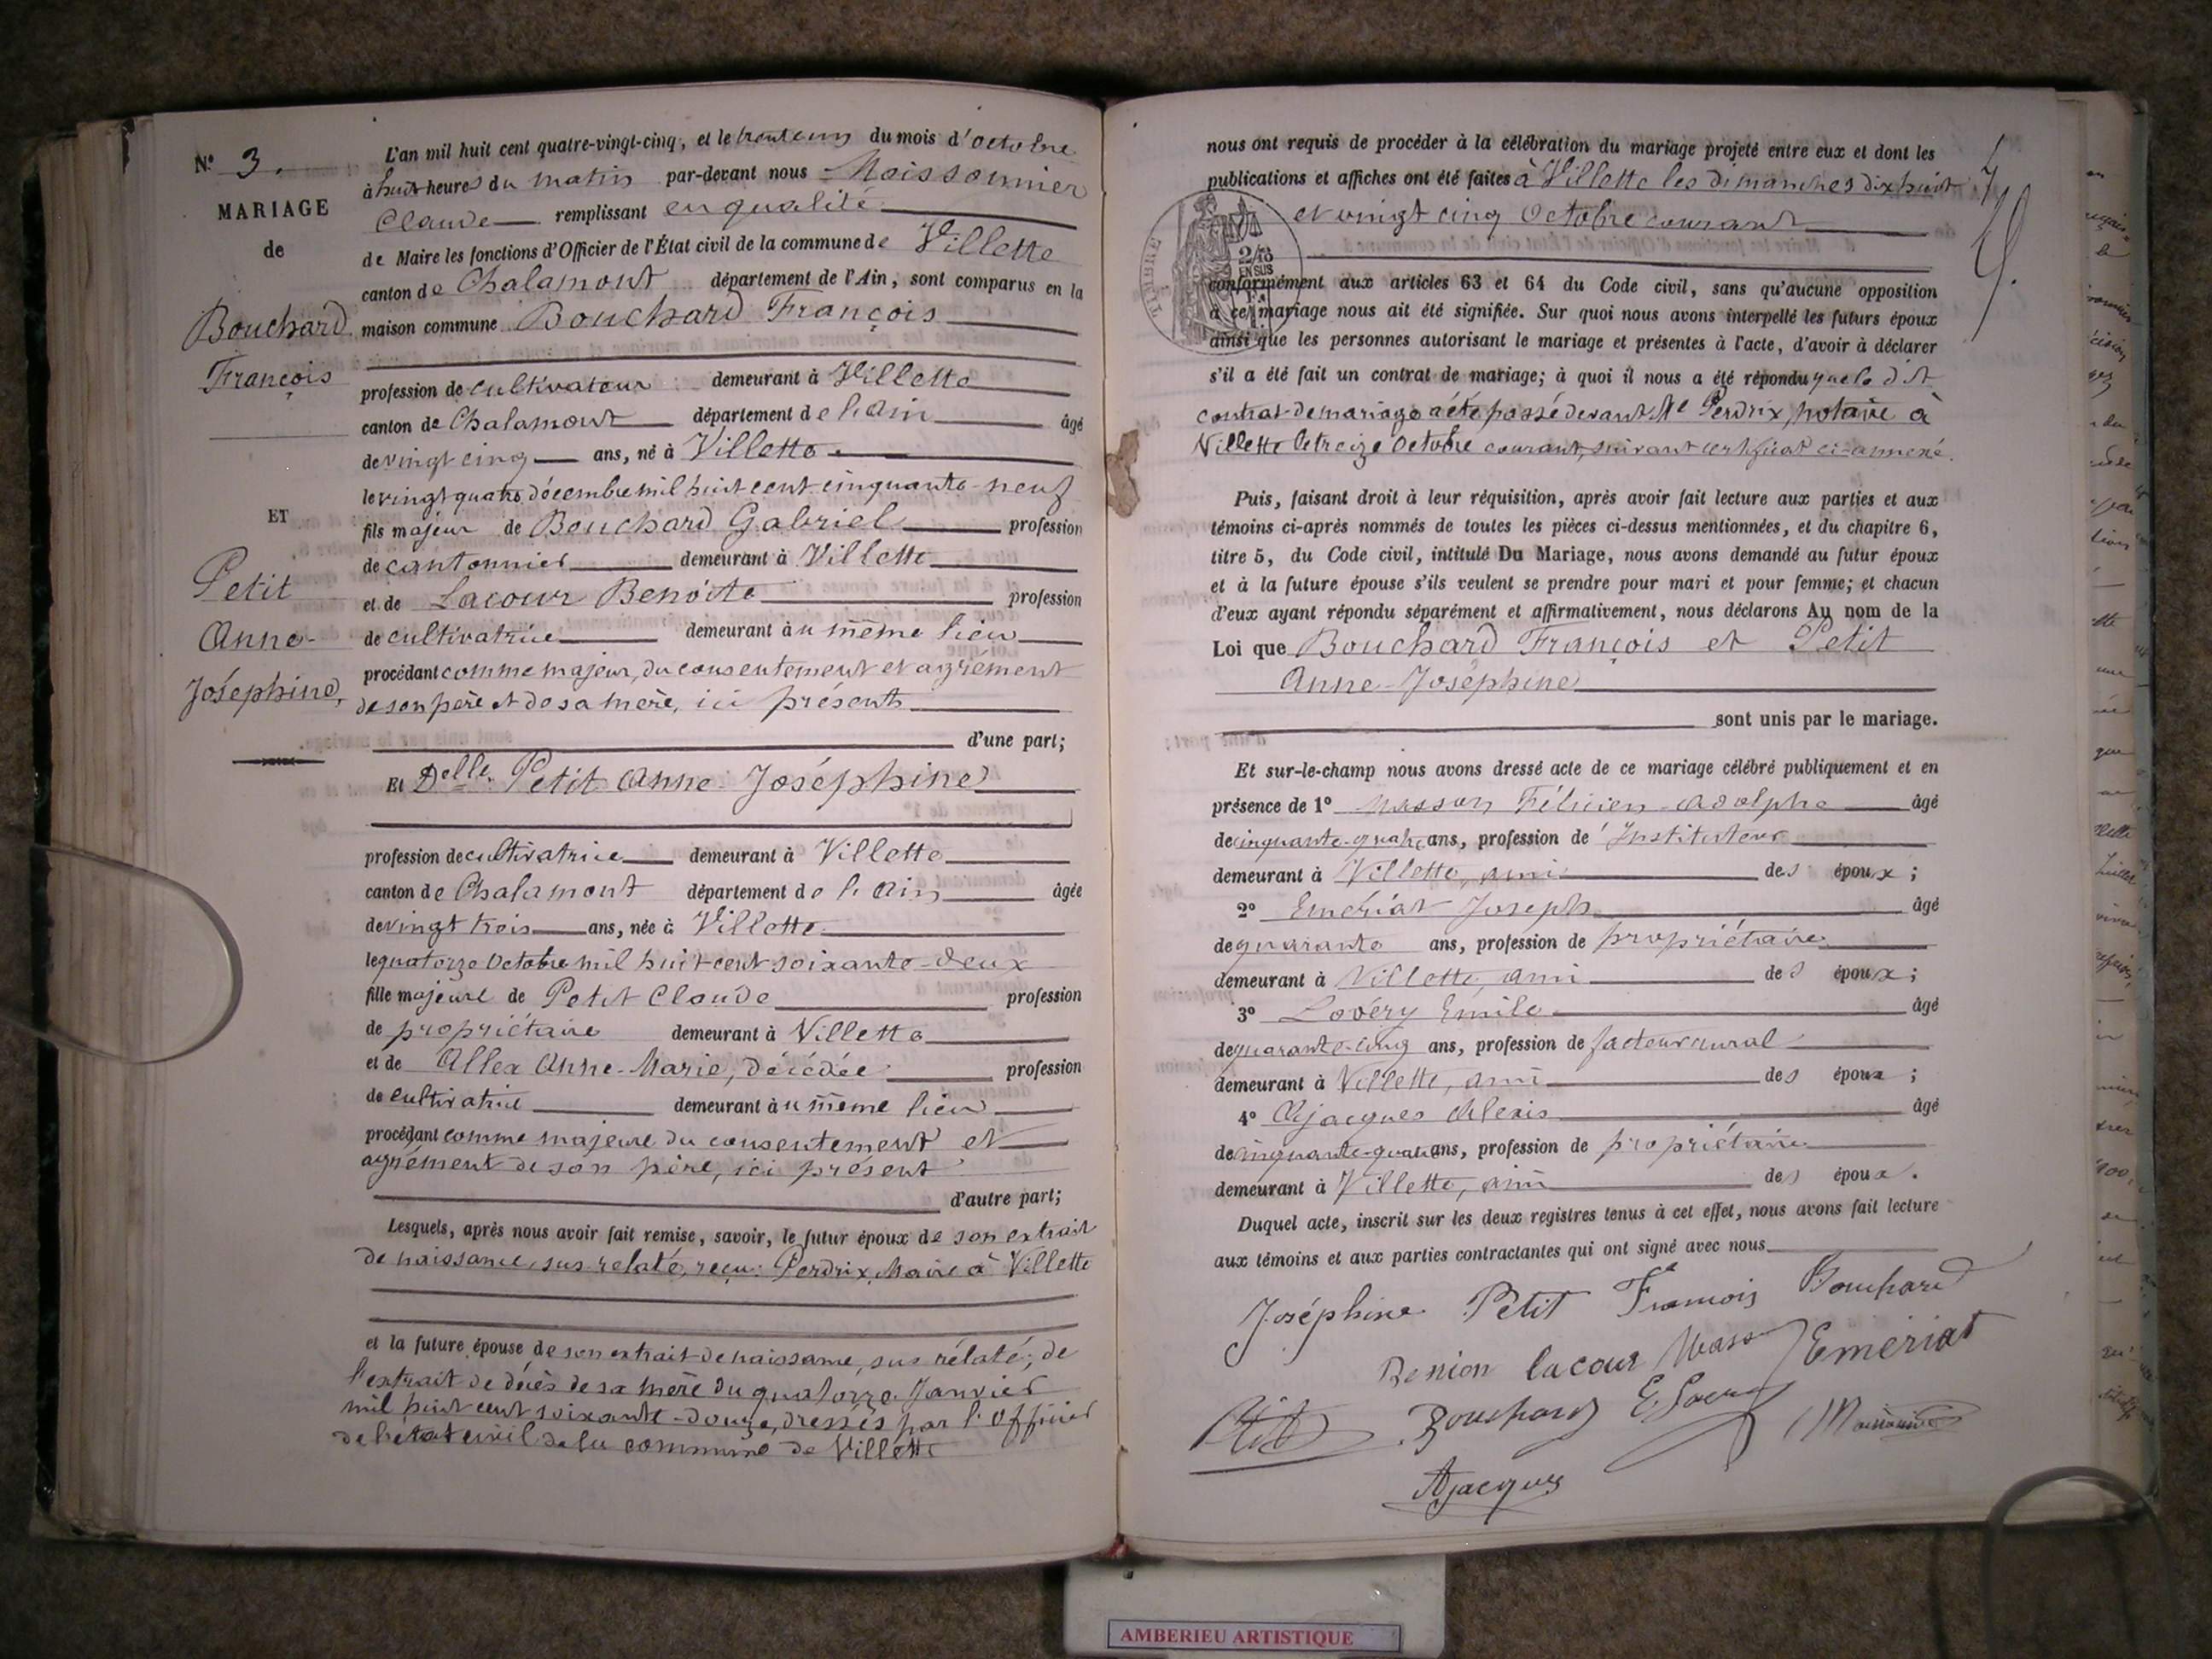 N° 3.
MARIAGE
de
Bouchard
François
ET
Petit
Anne-
Joséphine,
L'an mil huit cent quatre-vingt-cinq, et le trente un du mois d'octobre
à huit heures du matin par-devant nous Moissonnier
Claude remplissant en qualité
de Maire les fonctions d'Officier de l'État civil de la commune de Villette
canton de Chalamont département de l'Ain, sont comparus en la
maison commune Bouchard François
profession de cultivateur demeurant à Villette
canton de Chalamont département de l'Ain âgé
de vingt cinq ans, né à Villette
le vingt quatre décembre mil huit cent cinquante-neuf
fils majeur de Bouchard Gabriel profession
de cantonnier demeurant à Villette
et de Lacour Benoîte profession
de cultivatrice demeurant au même lieu
procédant comme majeur, du consentement et agrément
de son père et de sa mère, ici présents
d'une part;
Et Delle Petit Anne-Joséphine
profession de cultivatrice demeurant à Villette
canton de Chalamont département de l'Ain âgée
de vingt trois ans, née à Villette
le quatorze Octobre mil huit cent soixante-deux
fille majeure de Petit Claude profession
de propriétaire demeurant à Villette
et de Allex Anne-Marie, décédée profession
de cultivatrice demeurant au même lieu
procédant comme majeure du consentement et
agrément de son père, ici présent
d'autre part;
Lesquels, après nous avoir fait remise, savoir, le futur époux de son extrait
de naissance sus relaté, reçu: Perdrix, Maire à Villette
et la future épouse de son extrait de naissance, sus rélaté; de
l'extrait de décès de sa mère du quatorze Janvier
mil huit cent soixante-douze, dressés par l'Officier
de l'etat civil de la commune de Villette
nous ont requis de procéder à la célébration du mariage projeté entre eux et dont les
publications et affiches ont été faites à Villette les dimanches dix huit
et vingt cinq Octobre courant
TIMBRE
2/10
EN SUS
conformément aux articles 63 et 64 du Code civil, sans qu'aucune opposition
à ce mariage nous ait été signifiée. Sur quoi nous avons interpellé les futurs époux
ainsi que les personnes autorisant le mariage et présentes à l'acte, d'avoir à déclarer
s'il a été fait un contrat de mariage; à quoi il nous a été répondu que le dit
contrat de mariage a été passé devant Me Perdrix, notaire à
Villette le treize Octobre courant, suivant certificat ci-annexé.
Puis, faisant droit à leur réquisition, après avoir fait lecture aux parties et aux
témoins ci-après nommés de toutes les pièces ci-dessus mentionnées, et du chapitre 6,
titre 5, du Code civil, intitulé Du Mariage, nous avons demandé au futur époux
et à la future épouse s'ils veulent se prendre pour mari et pour femme; et chacun
d'eux ayant répondu séparément et affirmativement, nous déclarons Au nom de la
Loi que Bouchard François et Petit
Anne-Joséphine
sont unis par le mariage.
Et sur-le-champ nous avons dressé acte de ce mariage célébré publiquement et en
présence de 1° Masson Félicien-Adolphe âgé
de cinquante-quatre ans, profession de Instituteur
demeurant à Villette, ami des époux;
2° Emériat Joseph âgé
de quarante ans, profession de propriétaire
demeurant à Villette, ami des époux;
3° Lovéry Emile âgé
de quarante-cinq ans, profession de facteur rural
demeurant à Villette, ami des époux;
4° Ajacques Alexis âgé
de cinquante-quatre ans, profession de propriétaire
demeurant à Villette, ami des époux.
Duquel acte, inscrit sur les deux registres tenus à cet effet, nous avons fait lecture
aux témoins et aux parties contractantes qui ont signé avec nous
Joséphine Petit François Bouchard
lacour Emeriat
Petit Bouchard Moissonnier
Ajacques
AMBERIEU ARTISTIQUE